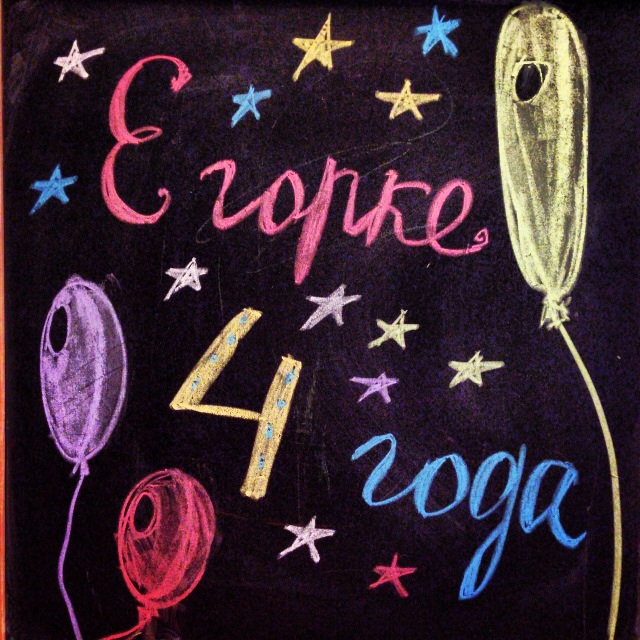 Егорке
4
года